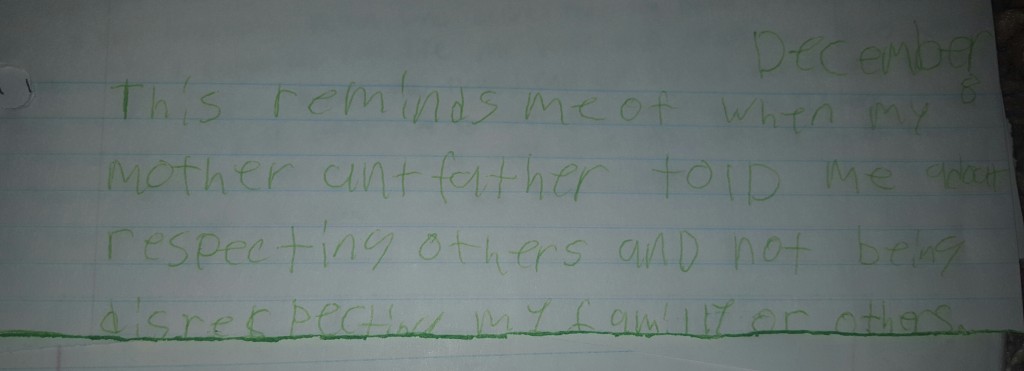 December
8
This reminds me of when my
mother ant father tolD me about
respecting others anD not being
disrespecting my familly or others.